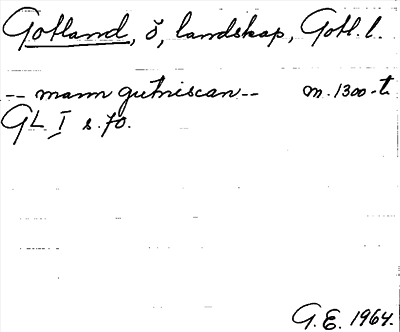 Gotland, ö, landskap, Gotl. l.
-- mann gutniscan -- m. 1300-t.
GL I s. 70.
G.E. 1964.